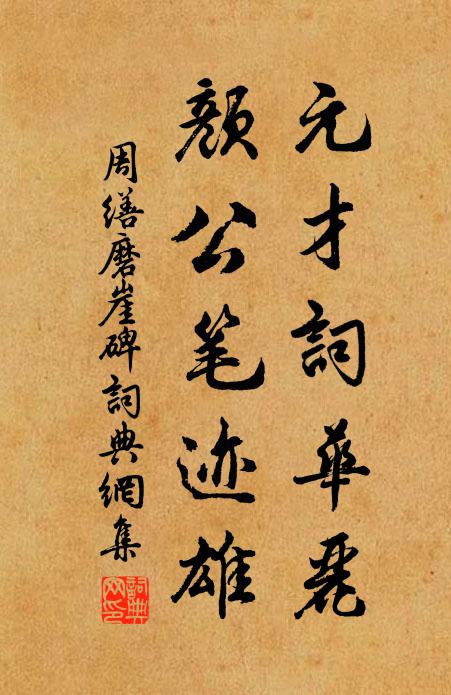 元才詞華麗
顏公笔迹雄
周繕磨崖碑詞典網集
詞典網印